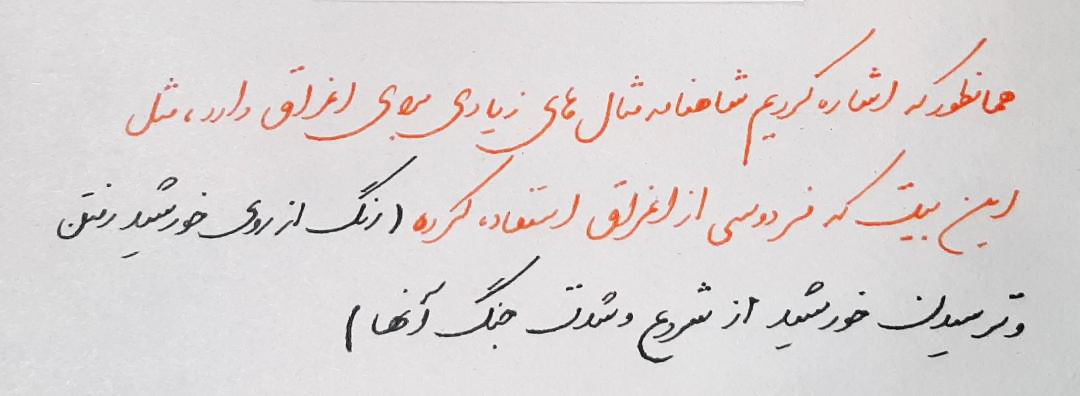 همانطور که اشاره کردیم شاهنامه مثال های زیادی برای اغراق دارد، مثل
این بیت که فردوسی از اغراق استفاده کرده (رنگ از روی خورشید رفتن
و ترسیدن خورشید از شروع و شدت جنگ آنها)